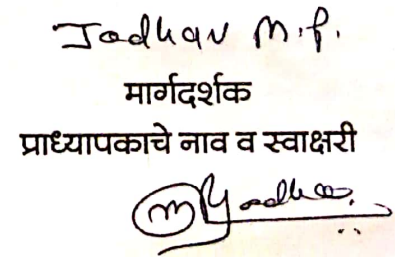 Jadhav M.P.
मार्गदर्शक
प्राध्यापकाचे नाव व स्वाक्षरी